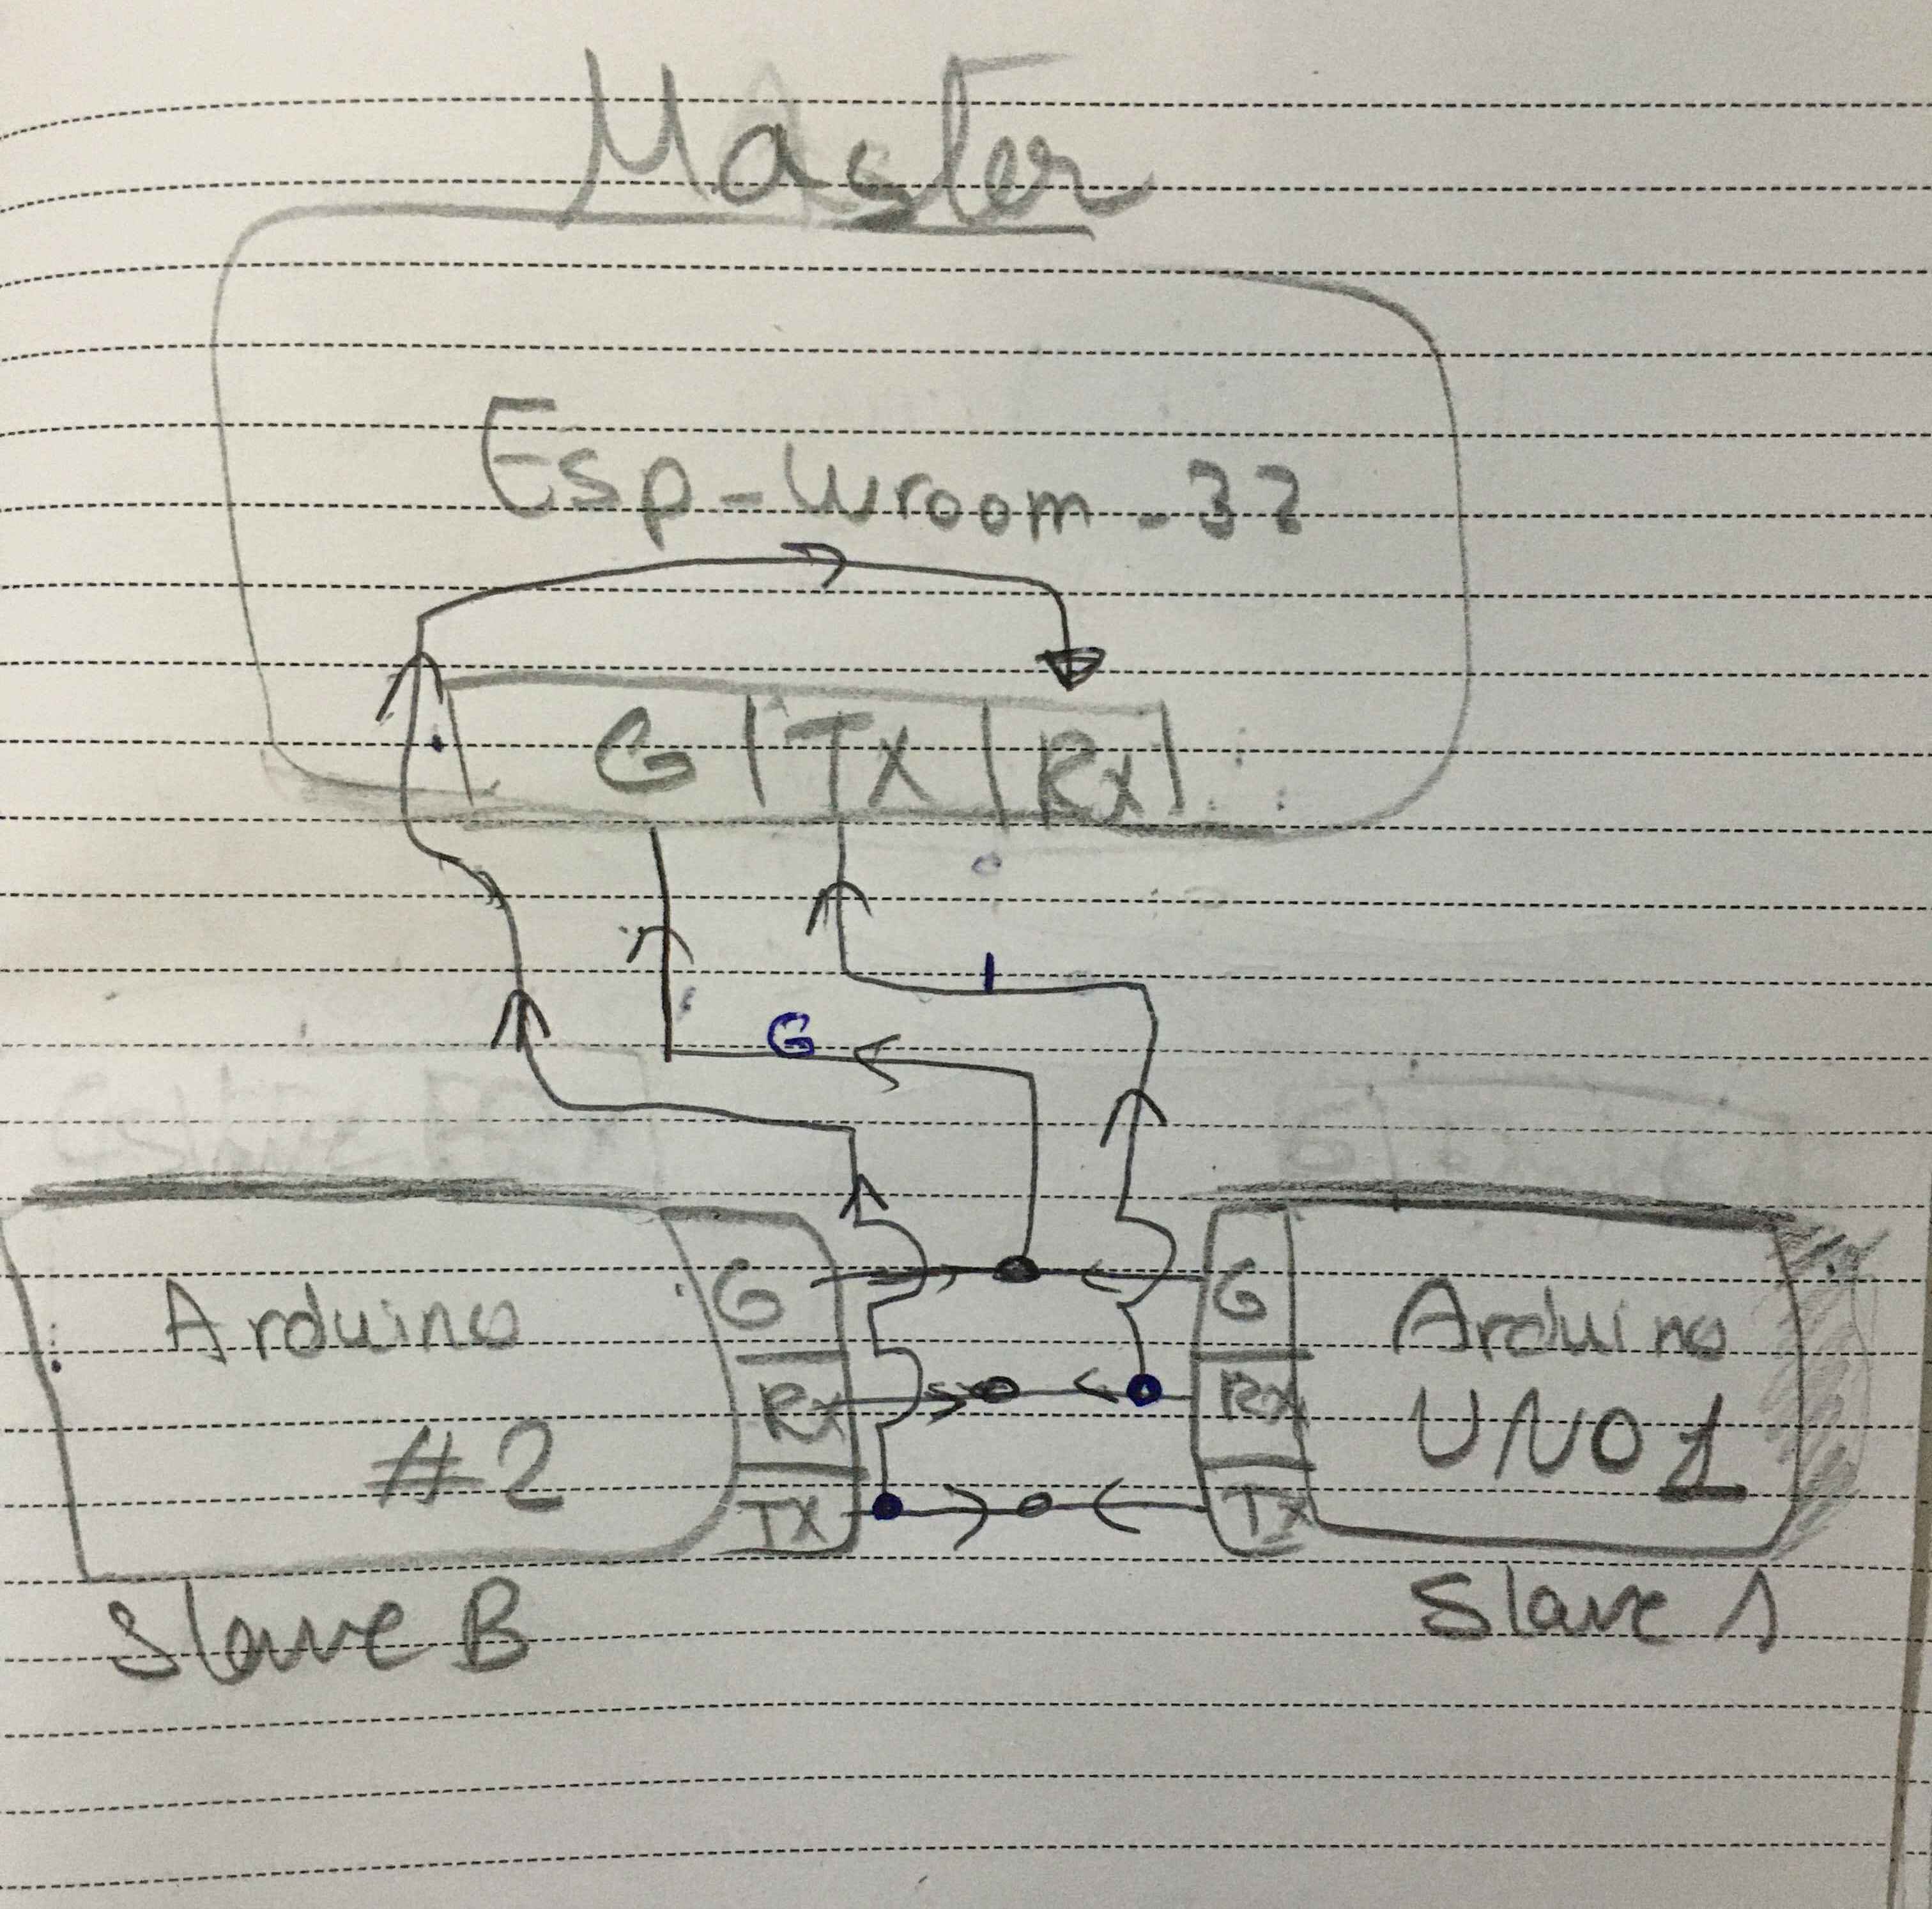 Master
Esp-Wroom-32
G | Tx | Rx |
I
G
G
Rx
TX
Arduino
#2
Slave B
G
Rx
Tx
Arduino
UNO 1
Slave